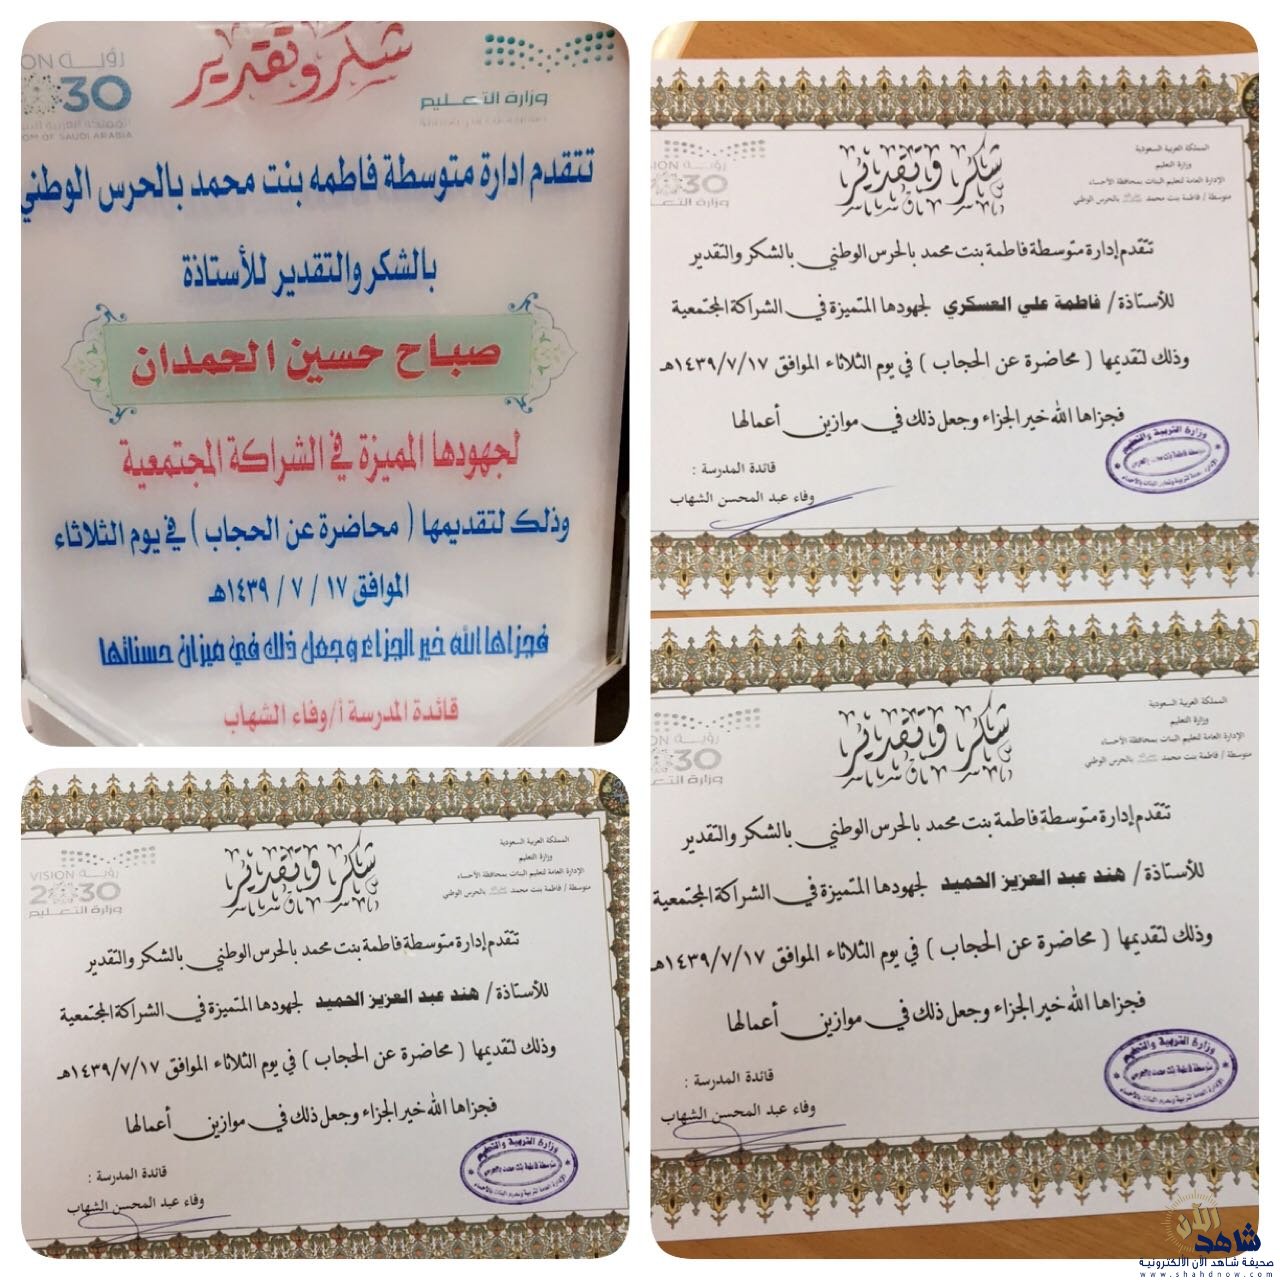 شكر وتقدير
رؤية
VISION
2030
OM OF SAUDI ARABIA
وزارة التعليم
تتقدم ادارة متوسطة فاطمه بنت محمد بالحرس الوطني
بالشكر والتقدير للأستاذة
صباح حسين الحمدان
لجهودها المميزة في الشراكة المجتمعية
وذلك لتقديمها ( محاضرة عن الحجاب ) في يوم الثلاثاء
الموافق ١٧ / ٧ / ١٤٣٩هـ
فجزاها الله خير الجزاء وجعل ذلك في ميزان حسناتها
قائدة المدرسة أ/وفاء الشهاب
المملكة العربية السعودية
وزارة التعليم
الإدارة العامة لتعليم البنات بمحافظة الأحساء
متوسطة / فاطمة بنت محمد بالحرس الوطني
شكر وتقدير
VISION رؤية
2030
وزارة التعليم
تتقدم إدارة متوسطة فاطمة بنت محمد بالحرس الوطني بالشكر والتقدير
للأستاذة / فاطمة علي العسكري لجهودها المتميزة في الشراكة المجتمعية
وذلك لتقديمها ( محاضرة عن الحجاب ) في يوم الثلاثاء الموافق ١٤٣٩/٧/١٧هـ
فجزاها الله خير الجزاء وجعل ذلك في موازين أعمالها
وزارة التربية والتعليم
قائدة المدرسة :
وفاء عبد المحسن الشهاب
المملكة العربية السعودية
وزارة التعليم
الإدارة العامة لتعليم البنات بمحافظة الأحساء
متوسطة / فاطمة بنت محمد بالحرس الوطني
شكر وتقدير
VISION رؤية
2030
وزارة التعليم
تتقدم إدارة متوسطة فاطمة بنت محمد بالحرس الوطني بالشكر والتقدير
للأستاذة / هند عبد العزيز الحميد لجهودها المتميزة في الشراكة المجتمعية
وذلك لتقديمها ( محاضرة عن الحجاب ) في يوم الثلاثاء الموافق ١٤٣٩/٧/١٧هـ
فجزاها الله خير الجزاء وجعل ذلك في موازين أعمالها
وزارة التربية والتعليم
قائدة المدرسة :
وفاء عبد المحسن الشهاب
المملكة العربية السعودية
وزارة التعليم
الإدارة العامة لتعليم البنات بمحافظة الأحساء
متوسطة / فاطمة بنت محمد بالحرس الوطني
شكر وتقدير
ION رؤية
2030
وزارة التعليم
تتقدم إدارة متوسطة فاطمة بنت محمد بالحرس الوطني بالشكر والتقدير
للأستاذة / هند عبد العزيز الحميد لجهودها المتميزة في الشراكة المجتمعية
وذلك لتقديمها ( محاضرة عن الحجاب ) في يوم الثلاثاء الموافق ١٤٣٩/٧/١٧هـ
فجزاها الله خير الجزاء وجعل ذلك في موازين أعمالها
وزارة التربية والتعليم
قائدة المدرسة :
وفاء عبد المحسن الشهاب
شاهد الآن
صحيفة شاهد الآن الالكترونية
www.shahdnow.com